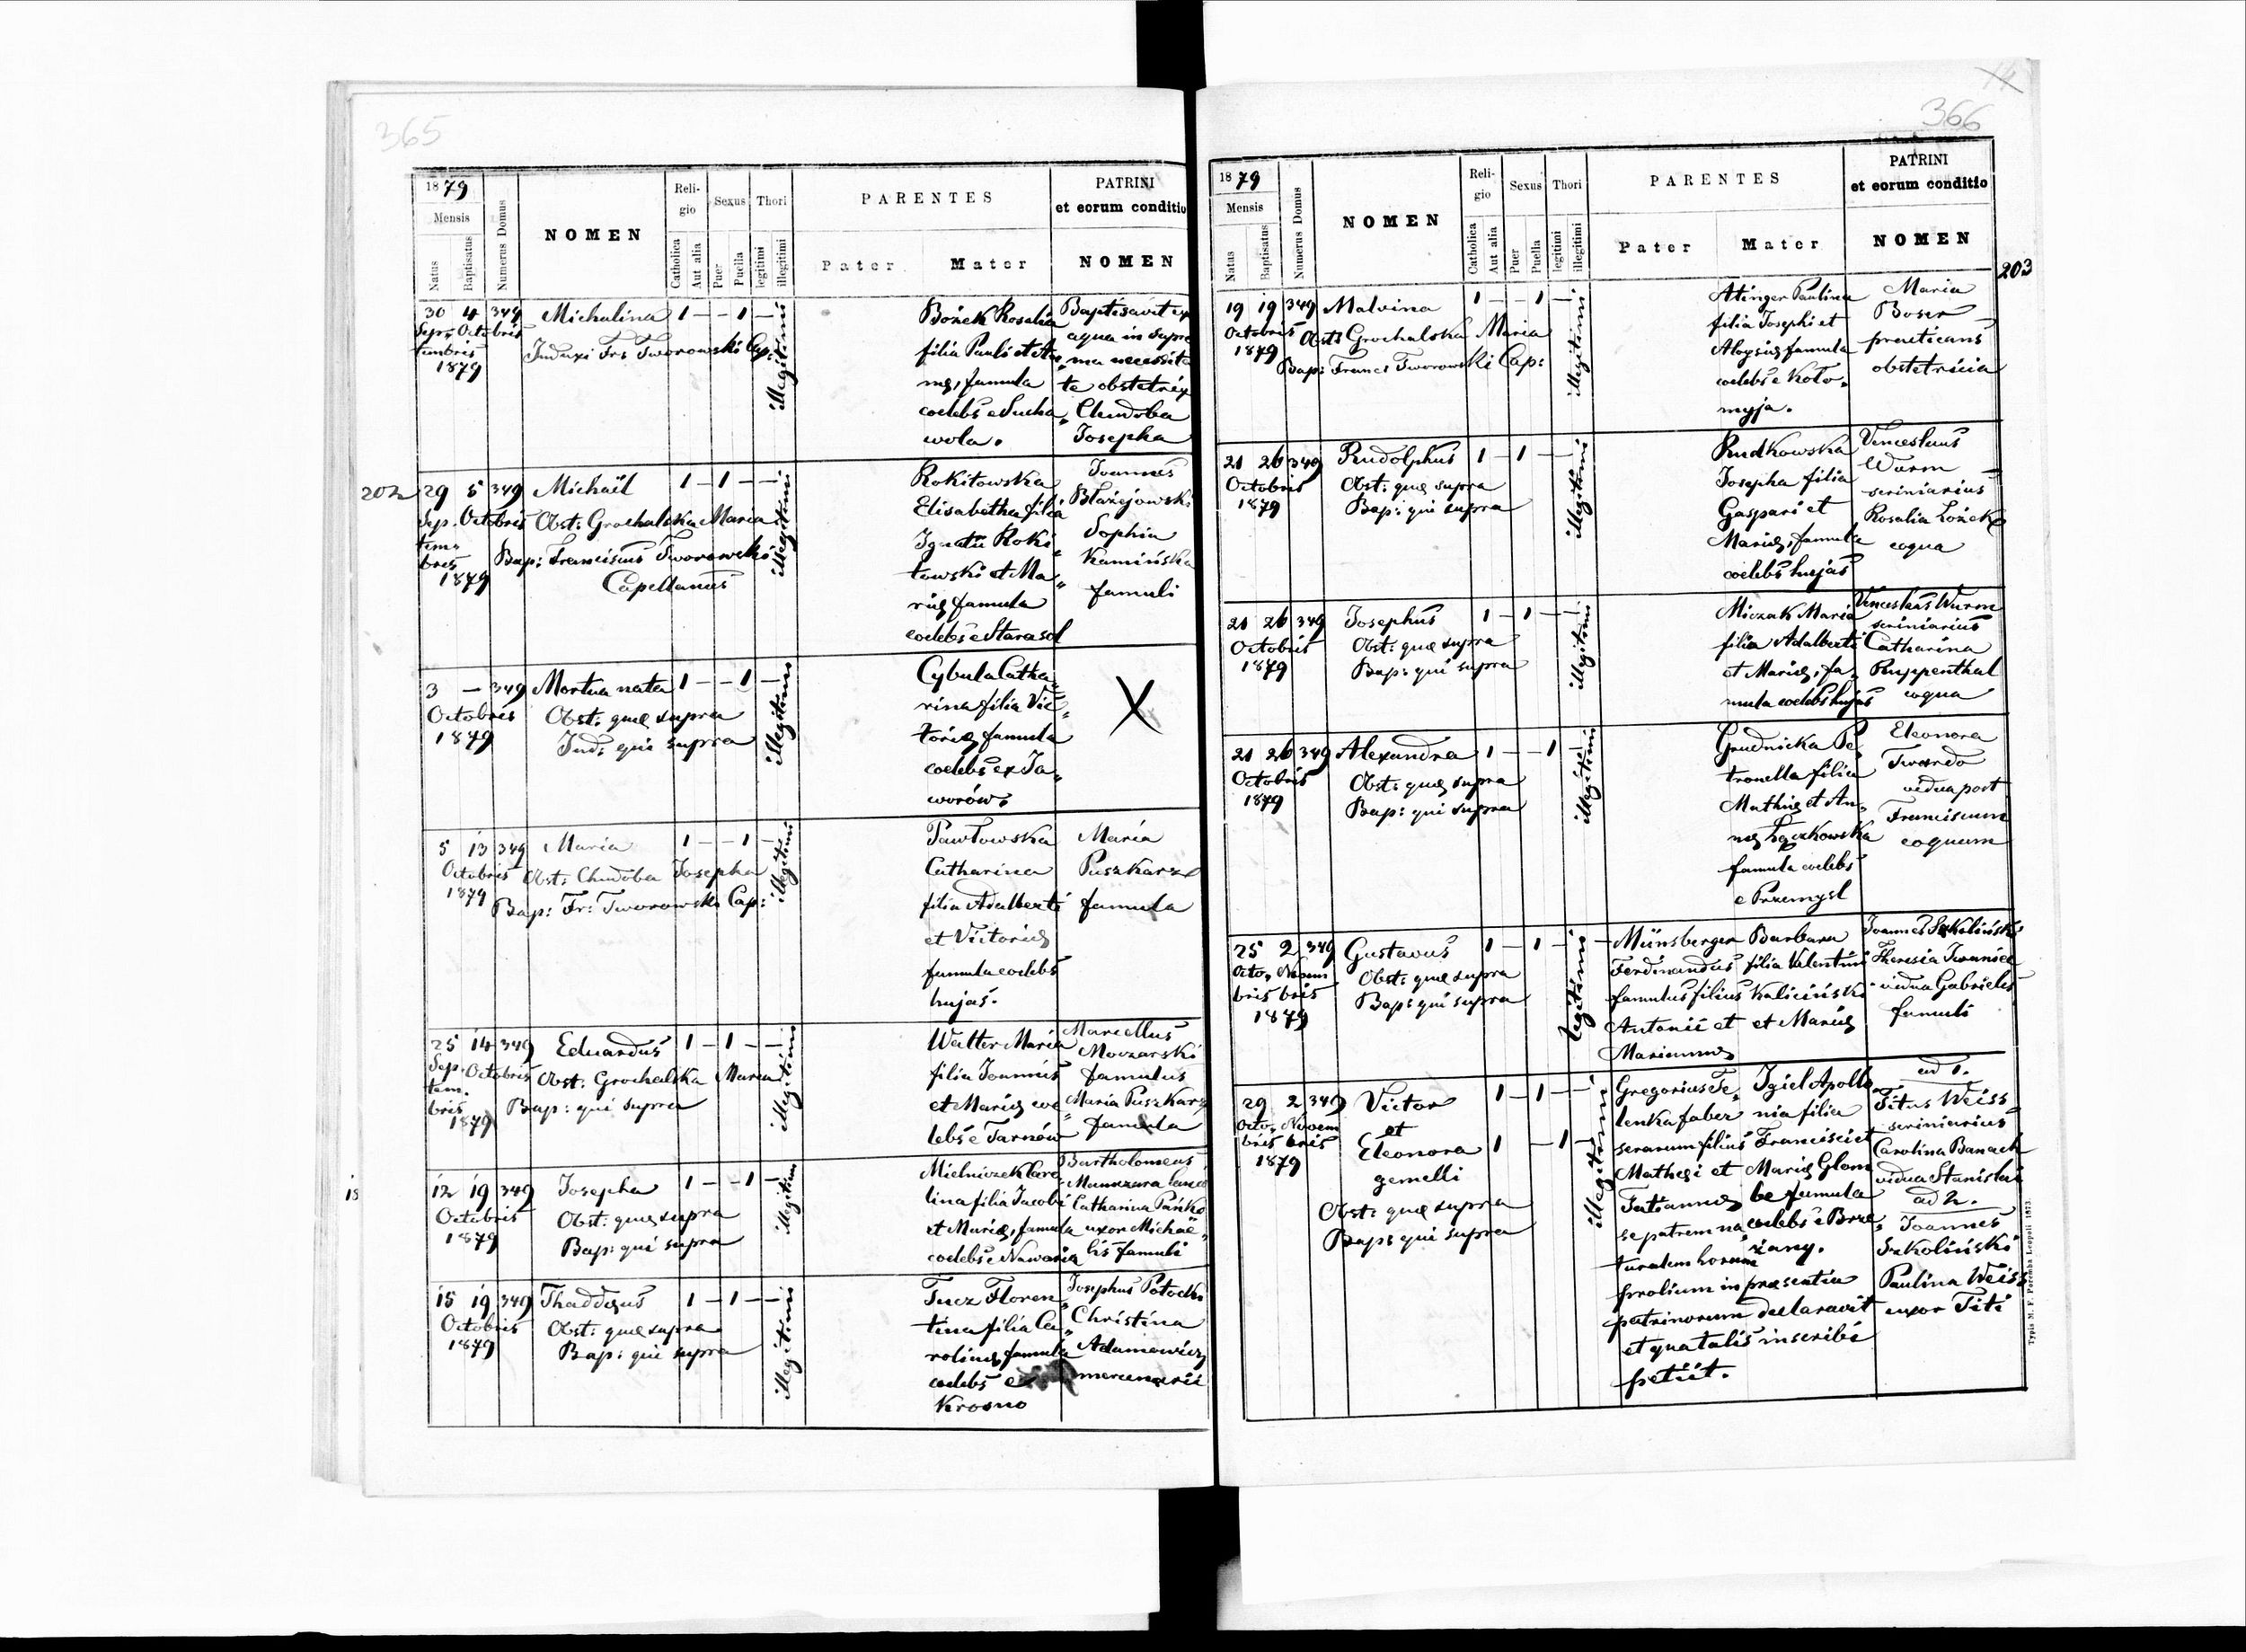 365
1879
Mensis
Natus
Baptisatus
Numerus Domus
NOMEN
Reli-
gio
Catholica
Aut alia
Sexus
Puer
Puella
Thori
legitimi
illegitimi
PARENTES
Pater
Mater
PATRINI
et eorum conditio
NOMEN
30 4 349 Michalina 1 — — 1 —
Sep- Octobris
tembris
1879
Induxi Fr: Tworowski Cap:
illegitimi
Bożek Rosalia
filia Pauli et An„
næ, famula
coelebs e Sucha„
wola.
Baptisavit ex
aqua in supre
ma necessita
te obstetrix
Chudoba
Josepha
202
29 5 349 Michaël 1 — 1 — —
Sep. Octobris
tem„
bris
1879
Obst: Grochalska Maria
Bap: Franciscus Tworowski
Capellanus
illegitimi
Rokitowska
Elisabetha filia
Ignatii Roki„
towski et Ma„
riæ famula
coelebs e Starasol
Joannes
Błażejowski
Sophia
Kamińska
famuli
3 — 349 Mortua nata 1 — — 1 —
Octobris
1879
Obst: quæ supra
Ind: qui supra
illegitimi
Cybula Catha„
rina filia Vic„
toriæ famula
coelebs ex Ja„
worów.
X
5 13 349 Maria 1 — — 1 —
Octobris
1879
Obst: Chudoba Josepha
Bap: Fr: Tworowski Cap:
illegitimi
Pawłowska
Catharina
filia Adalberti
et Victoriæ
famula coelebs
hujas.
Maria
Puszkarz
famula
25 14 349 Eduardus 1 — 1 — —
Sep. Octobris
tem.
bris
1879
Obst: Grochalska Maria
Bap: qui supra
illegitimi
Walter Maria
filia Joannis
et Mariæ coe„
lebs e Tarnów
Marcellus
Moczarski
famulus
Maria Puszkarz
famula
18
12 19 349 Josepha 1 — — 1 —
Octobris
1879
Obst: quæ supra
Bap: qui supra
illegitimi
Mielniczek Caro„
lina filia Jacobi
et Mariæ, famula
coelebs e Nawaria
Bartholomeus
Catharina Pańko
uxor Michaë„
lis famuli
15 19 349 Thaddæus 1 — 1 — —
Octobris
1879
Obst: quæ supra
Bap: qui supra
illegitimi
Tucz Floren„
tina filia Ca„
rolinæ, famula
coelebs e
Krosno
Josephus Potocki
Christina
Adamowicz
mercenarii
14
366
1879
Mensis
Natus
Baptisatus
Numerus Domus
NOMEN
Reli-
gio
Catholica
Aut alia
Sexus
Puer
Puella
Thori
legitimi
illegitimi
PARENTES
Pater
Mater
PATRINI
et eorum conditio
NOMEN
203
19 19 349 Malvina 1 — — 1 —
Octobris
1879
Obst: Grochalska Maria
Bap: Franc: Tworowski Cap:
illegitimi
Atinger Paulina
filia Josephi et
Aloysiæ famula
coelebs e Koło„
myja.
Maria
Boser
practicans
obstetricia
21 26 349 Rudolphus 1 — 1 — —
Octobris
1879
Obst: quæ supra
Bap: qui supra
illegitimi
Rudkowska
Josepha filia
Gaspari et
Mariæ, famula
coelebs hujas
Venceslaus
Wurm
scriniarius
Rosalia Łożek
coqua
21 26 349 Josephus 1 — 1 — —
Octobris
1879
Obst: quæ supra
Bap: qui supra
illegitimi
Miczak Maria
filia Adalberti
et Mariæ, fa„
mula coelebs hujas
Venceslaus Wurm
scriniarius
Catharina
Ruppenthal
coqua
21 26 349 Alexandra 1 — — 1 —
Octobris
1879
Obst: quæ supra
Bap: qui supra
illegitimi
Grudnicka Pe„
tronella filia
Mathiæ et An„
næ Łączkowska
famula coelebs
e Przemysl
Eleonora
Twardo
vidua post
Franciscum
coquum
25 2 349 Gustavus 1 — 1 — —
Octo„ Novem
bris bris
1879
Obst: quæ supra
Bap: qui supra
legitimi
Münsberger
Ferdinandus
famulus filius
Antonii et
Mariannæ
Barbara
filia Valentini
Kaliciński
et Mariæ
Joannes Szkoliński
Theresia Iwaniec
vidua Gabrielis
famuli
29 2 349 Victor 1 — 1 — —
Octo„ Novem
bris bris
1879
et
Eleonora 1 — 1 —
gemelli
Obst: quæ supra
Bap: qui supra
illegitimi
Gregorius Te„
lenka faber
serarum filius
Mathæi et
Tatiannæ
se patrem na
turalem horum
prolium in præsentia
patrinorum declaravit
et qua talis inscribi
petiit.
Igiel Apollo
nia filia
Francisci et
Mariæ Glom
be famula
coelebs e Brze„
zany.
ad 1.
Titus Weiss
scriniarius
Carolina Banach
vidua Stanislai
ad 2.
Joannes
Szkoliński
Paulina Weiss
uxor Titi
Typis M. F. Poremba Leopoli 1873.